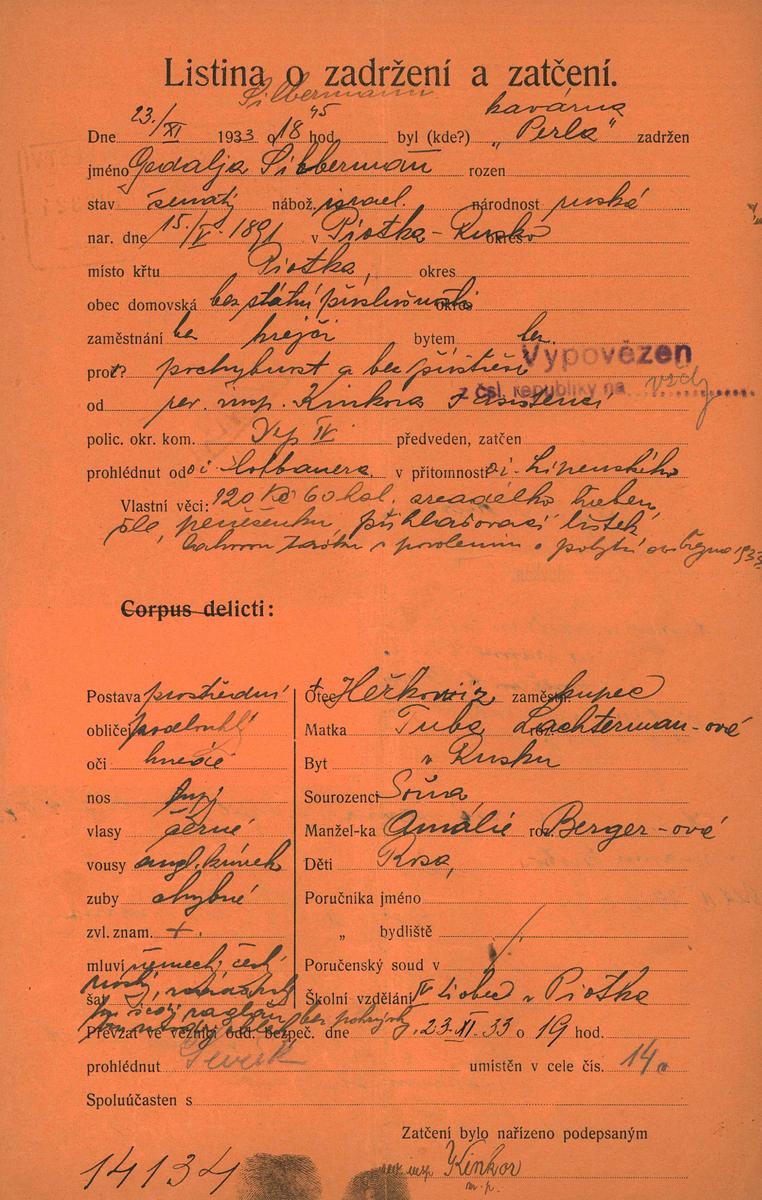 Listina o zadržení a zatčení.
Silbermann
Dne 23./XI 1933 o 18 45 hod. byl (kde?) kavárna "Perla" zadržen
jméno Gedalja Silberman rozen
stav ženatý nábož. israel. národnost ruská
nar. dne 15./V. 1891 v Piotka - Rusko okres
místo křtu Piotka, okres
obec domovská bez státní příslušnosti okres
zaměstnání krejčí bytem bez.
proč? pochybnost a bez přístřeší
Vypovězen
z čsl. republiky na vždy
od rev. insp. Kinkora s asistencí
polic. okr. kom. IV předveden, zatčen
prohlédnut od v přítomnosti Lipenského
Vlastní věci: 120 Kč 60 hal. zrcadélko, hřeben,
peněženku, přihlašovací lístek
s povolením o pobytu
Corpus delicti:
Postava prostřední
obličej podlouhlý
oči hnědé
nos tupý
vlasy černé
vousy angl. knírek
zuby chybné
zvl. znam. +.
mluví německy, česky
šat
† Otec Heřkowiz zaměstn. kupec
Matka Tuba roz. Lachterman-ová
Byt v Rusku
Sourozenci Soňa
Manžel-ka Amálie roz. Berger-ová
Děti Rosa,
Poručníka jméno
„ bydliště
Poručenský soud v
Školní vzdělání IV tř. obec. v Piotka
Převzat ve věznici odd. bezpeč. dne 23.XI.33 o 19 hod.
prohlédnut umístěn v cele čís. 14.
Spoluúčasten s
Zatčení bylo nařízeno podepsaným
14134
rev. insp. Kinkor
m. p.